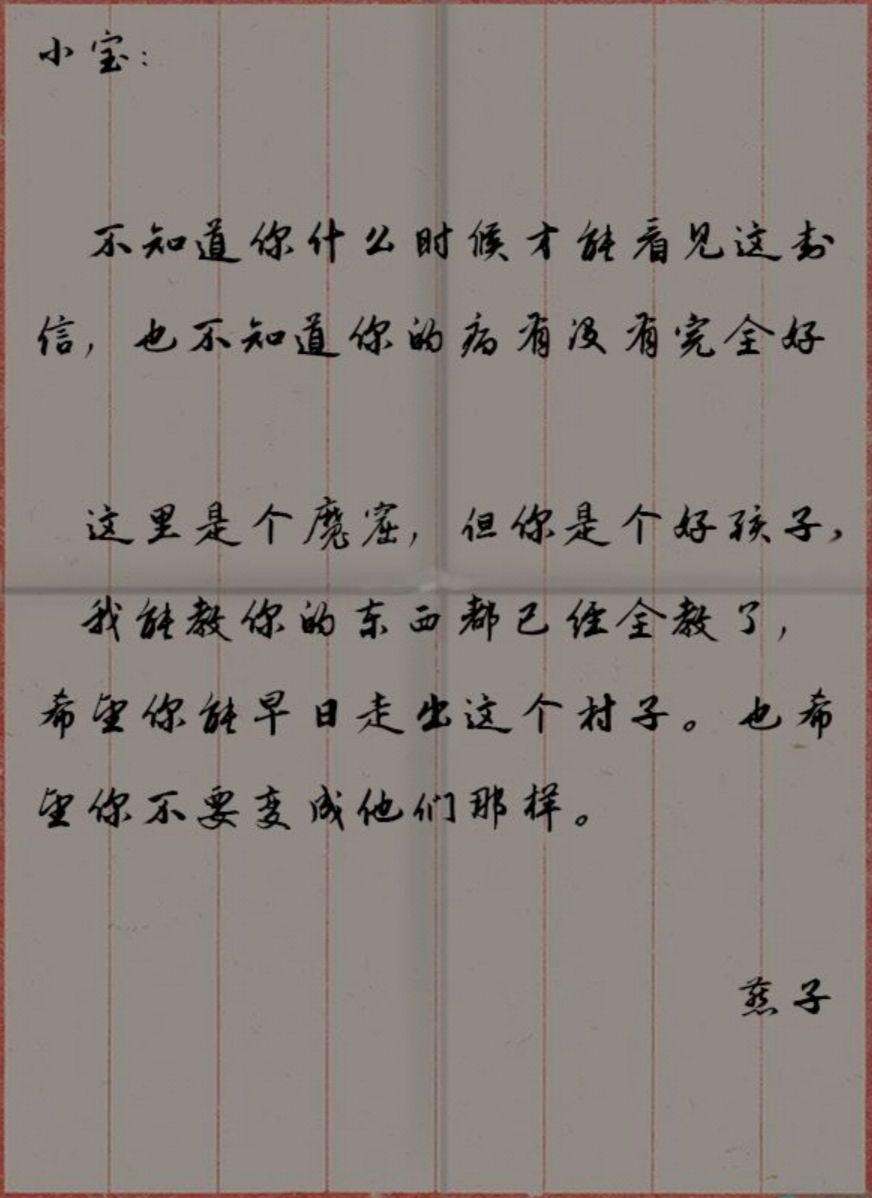 小宝：
不知道你什么时候才能看见这封
信，也不知道你的病有没有完全好
这里是个魔窟，但你是个好孩子，
我能教你的东西都已经全教了，
希望你能早日走出这个村子。也希
望你不要变成他们那样。
燕子